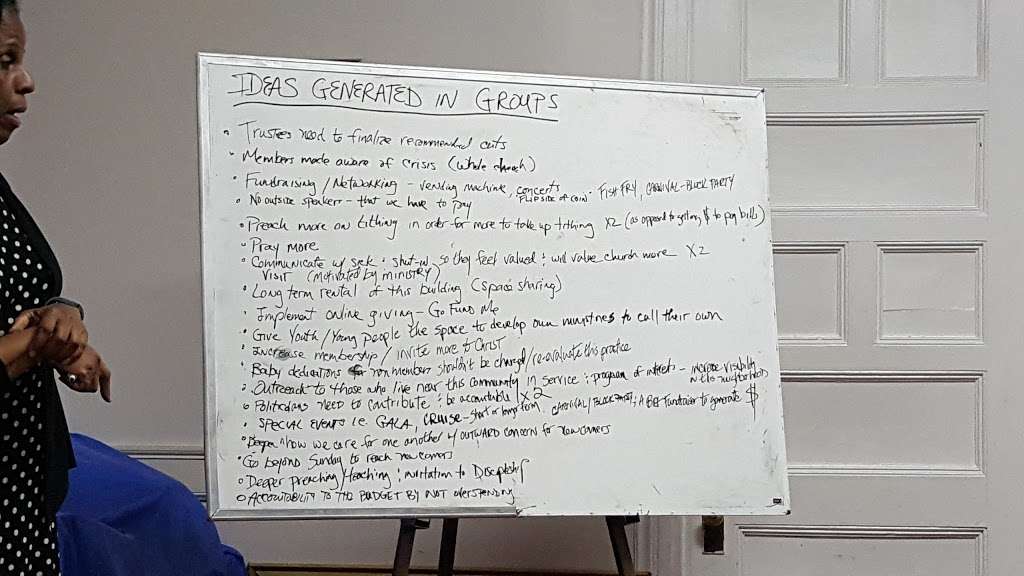 IDEAS GENERATED IN GROUPS
• Trustees need to finalize recommended cuts
• Members made aware of crisis (whole church)
• Fundraising / Networking - vending machine, concerts FISH FRY, CARNIVAL - BLOCK PARTY
• No outside speakers - that we have to pay FLIP SIDE OF COIN
• Preach more on tithing in order for more to take up tithing X2 (as opposed to getting $ to pay bills)
• Pray more
• Communicate w/ sick & shut-in so they feel valued & will value church more X2
VISIT (motivated by MINISTRY)
• Long term rental of this building (space sharing)
• Implement online giving - Go Fund Me
• Give Youth / Young people the space to develop own ministries to call their own
• Increase membership / invite more to Christ
• Baby dedications for nonmembers shouldn't be charged / re-evaluate this practice
• Outreach to those who live near this community in service & program of interests - increase visibility in the neighborhood
• Politicians need to contribute & be accountable X2
• SPECIAL EVENTS i.e. GALA, CRUISE - short or long term, CARNIVAL / BLOCK PARTY, A BIG Fundraiser to generate $
• Deeper how we care for one another w/ OUTWARD concern for newcomers
• Go beyond Sunday to reach newcomers
• Deeper preaching / teaching & invitation to Discipleship
• ACCOUNTABILITY TO THE BUDGET BY NOT overspending